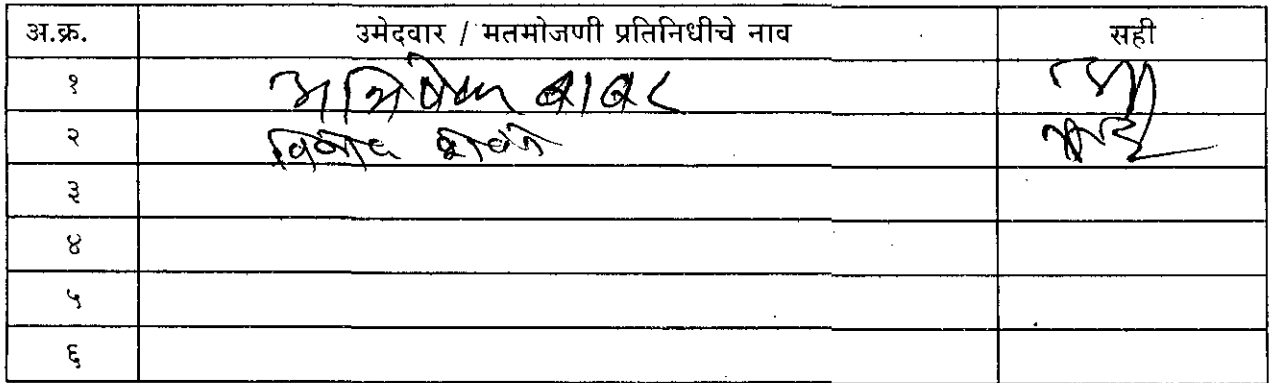 अ.क्र. उमेदवार / मतमोजणी प्रतिनिधीचे नाव सही
१ अभिषेक बाबर
२ विनोद
३
४
५
६